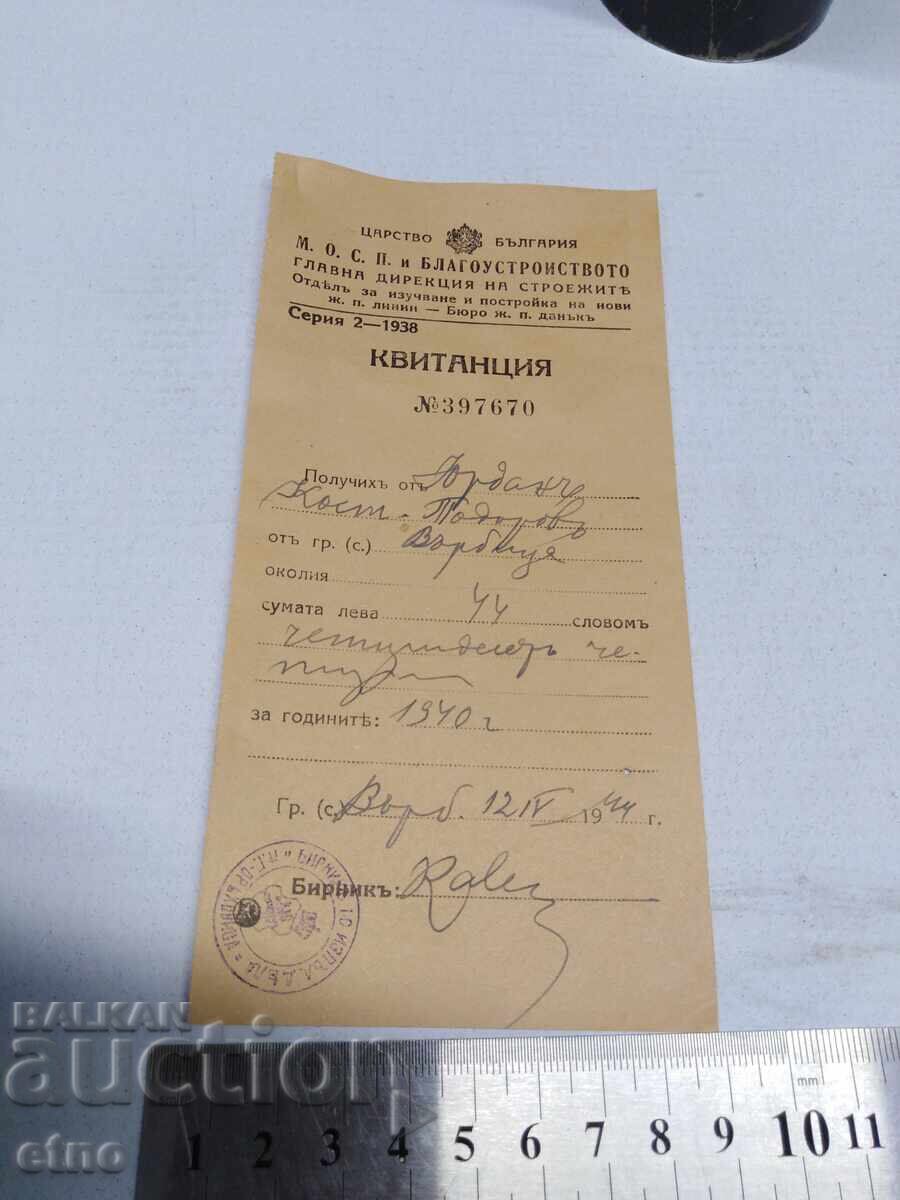 ЦАРСТВО БЪЛГАРИЯ
М. О. С. П. и БЛАГОУСТРОИСТВОТО
ГЛАВНА ДИРЕКЦИЯ НА СТРОЕЖИТѢ
Отдѣлъ за изучване и постройка на нови
ж. п. линии — Бюро ж. п. данъкъ
Серия 2—1938
КВИТАНЦИЯ
№397670
Получихъ отъ Юрданъ
Кост. Тодоровъ
отъ гр. (с.) Върбица
околия
сумата лева 44 словомъ
четиридесеть че-
тири
за годинитѣ: 1940 г
Гр. (с.) Върб. 12 IV 1944 г.
Бирникъ:
BALKAN
auction
etno
mm
1 2 3 4 5 6 7 8 9 10 11